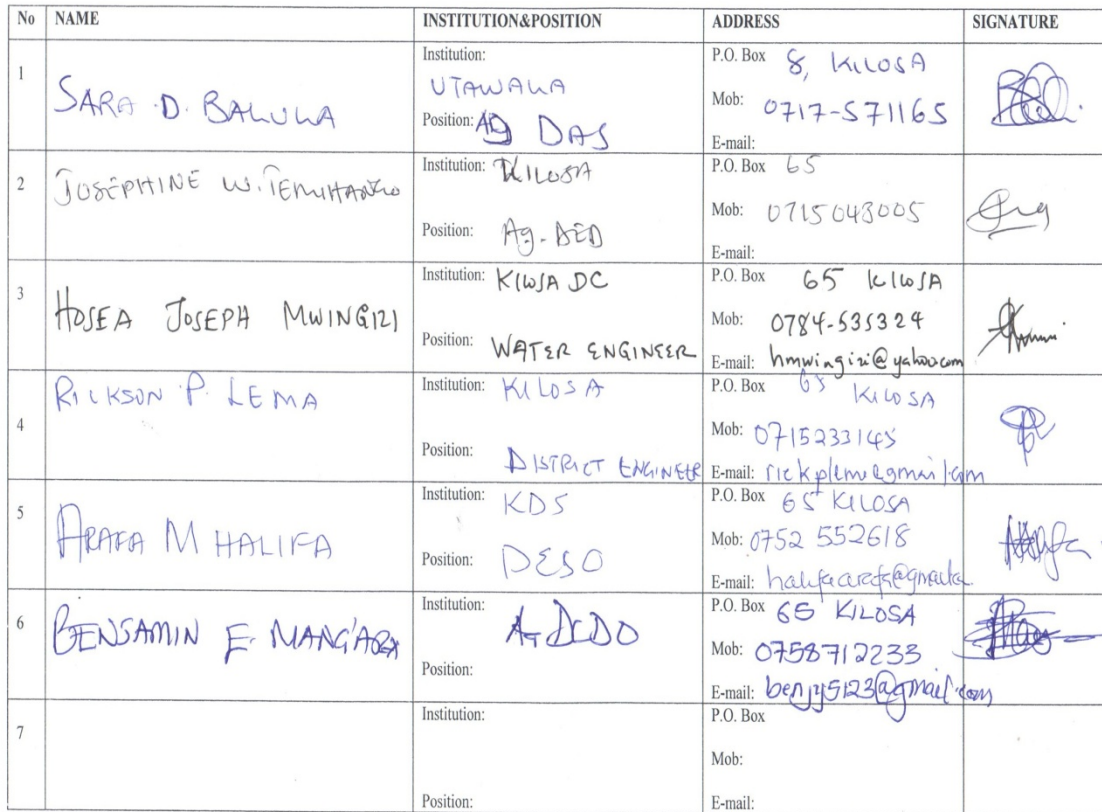 No NAME INSTITUTION&POSITION ADDRESS SIGNATURE
1
SARA D. BALULA
Institution:
UTAWALA
Position: Ag DAS
P.O. Box 8, KILOSA
Mob: 0717-571165
E-mail:
2
JOSEPHINE W.
Institution: KILOSA
Position: Ag. DED
P.O. Box 65
Mob: 0715043005
E-mail:
3
HOSEA JOSEPH MWINGIZI
Institution: KILOSA DC
Position: WATER ENGINEER
P.O. Box 65 KILOSA
Mob: 0784-535324
E-mail: hmwingizi@yahoo.com
4
RICKSON P. LEMA
Institution: KILOSA
Position: DISTRICT ENGINEER
P.O. Box 65 KILOSA
Mob: 0715233145
E-mail:
5
ARAFA M HALIFA
Institution: KDS
Position: DESO
P.O. Box 65 KILOSA
Mob: 0752 552618
E-mail:
6
BENJAMIN E.
Institution: Ag DCDO
Position:
P.O. Box 65 KILOSA
Mob: 0758712233
E-mail: benjy5123@gmail.com
7
Institution:
Position:
P.O. Box
Mob:
E-mail: